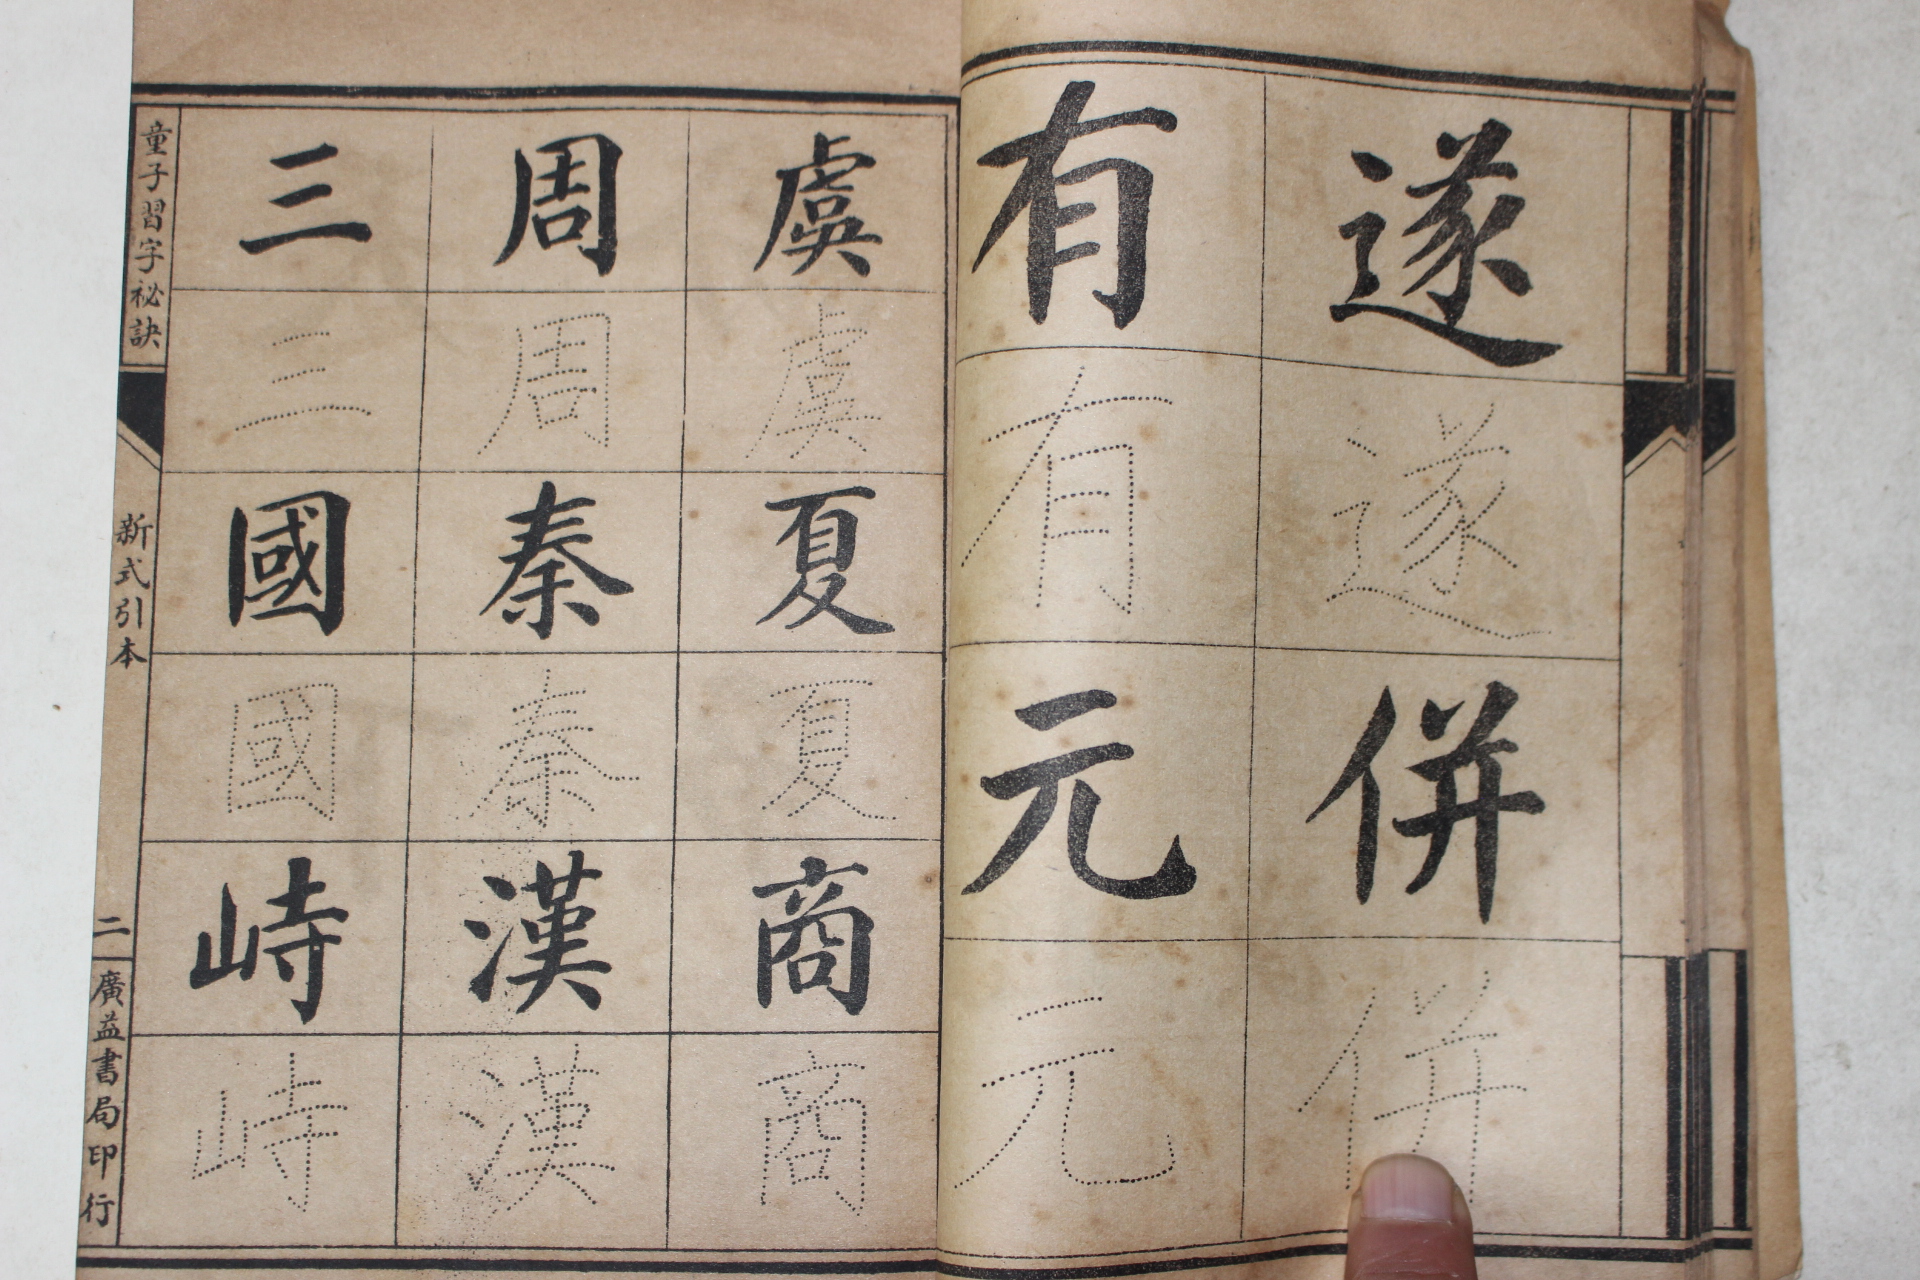 遂
遂
併
併
有
有
元
元
虞
虞
夏
夏
商
商
周
周
秦
秦
漢
漢
三
三
國
國
峙
峙
童子習字祕訣
新式引本
二
廣益書局印行